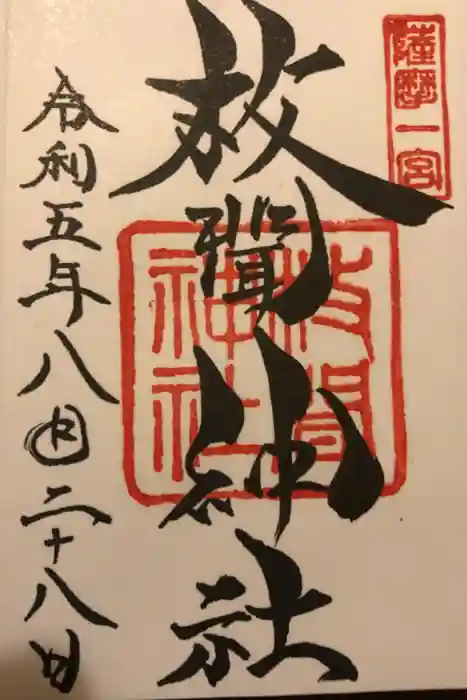 薩摩一宮
枚聞神社
枚聞
神社
令和五年八月二十八日